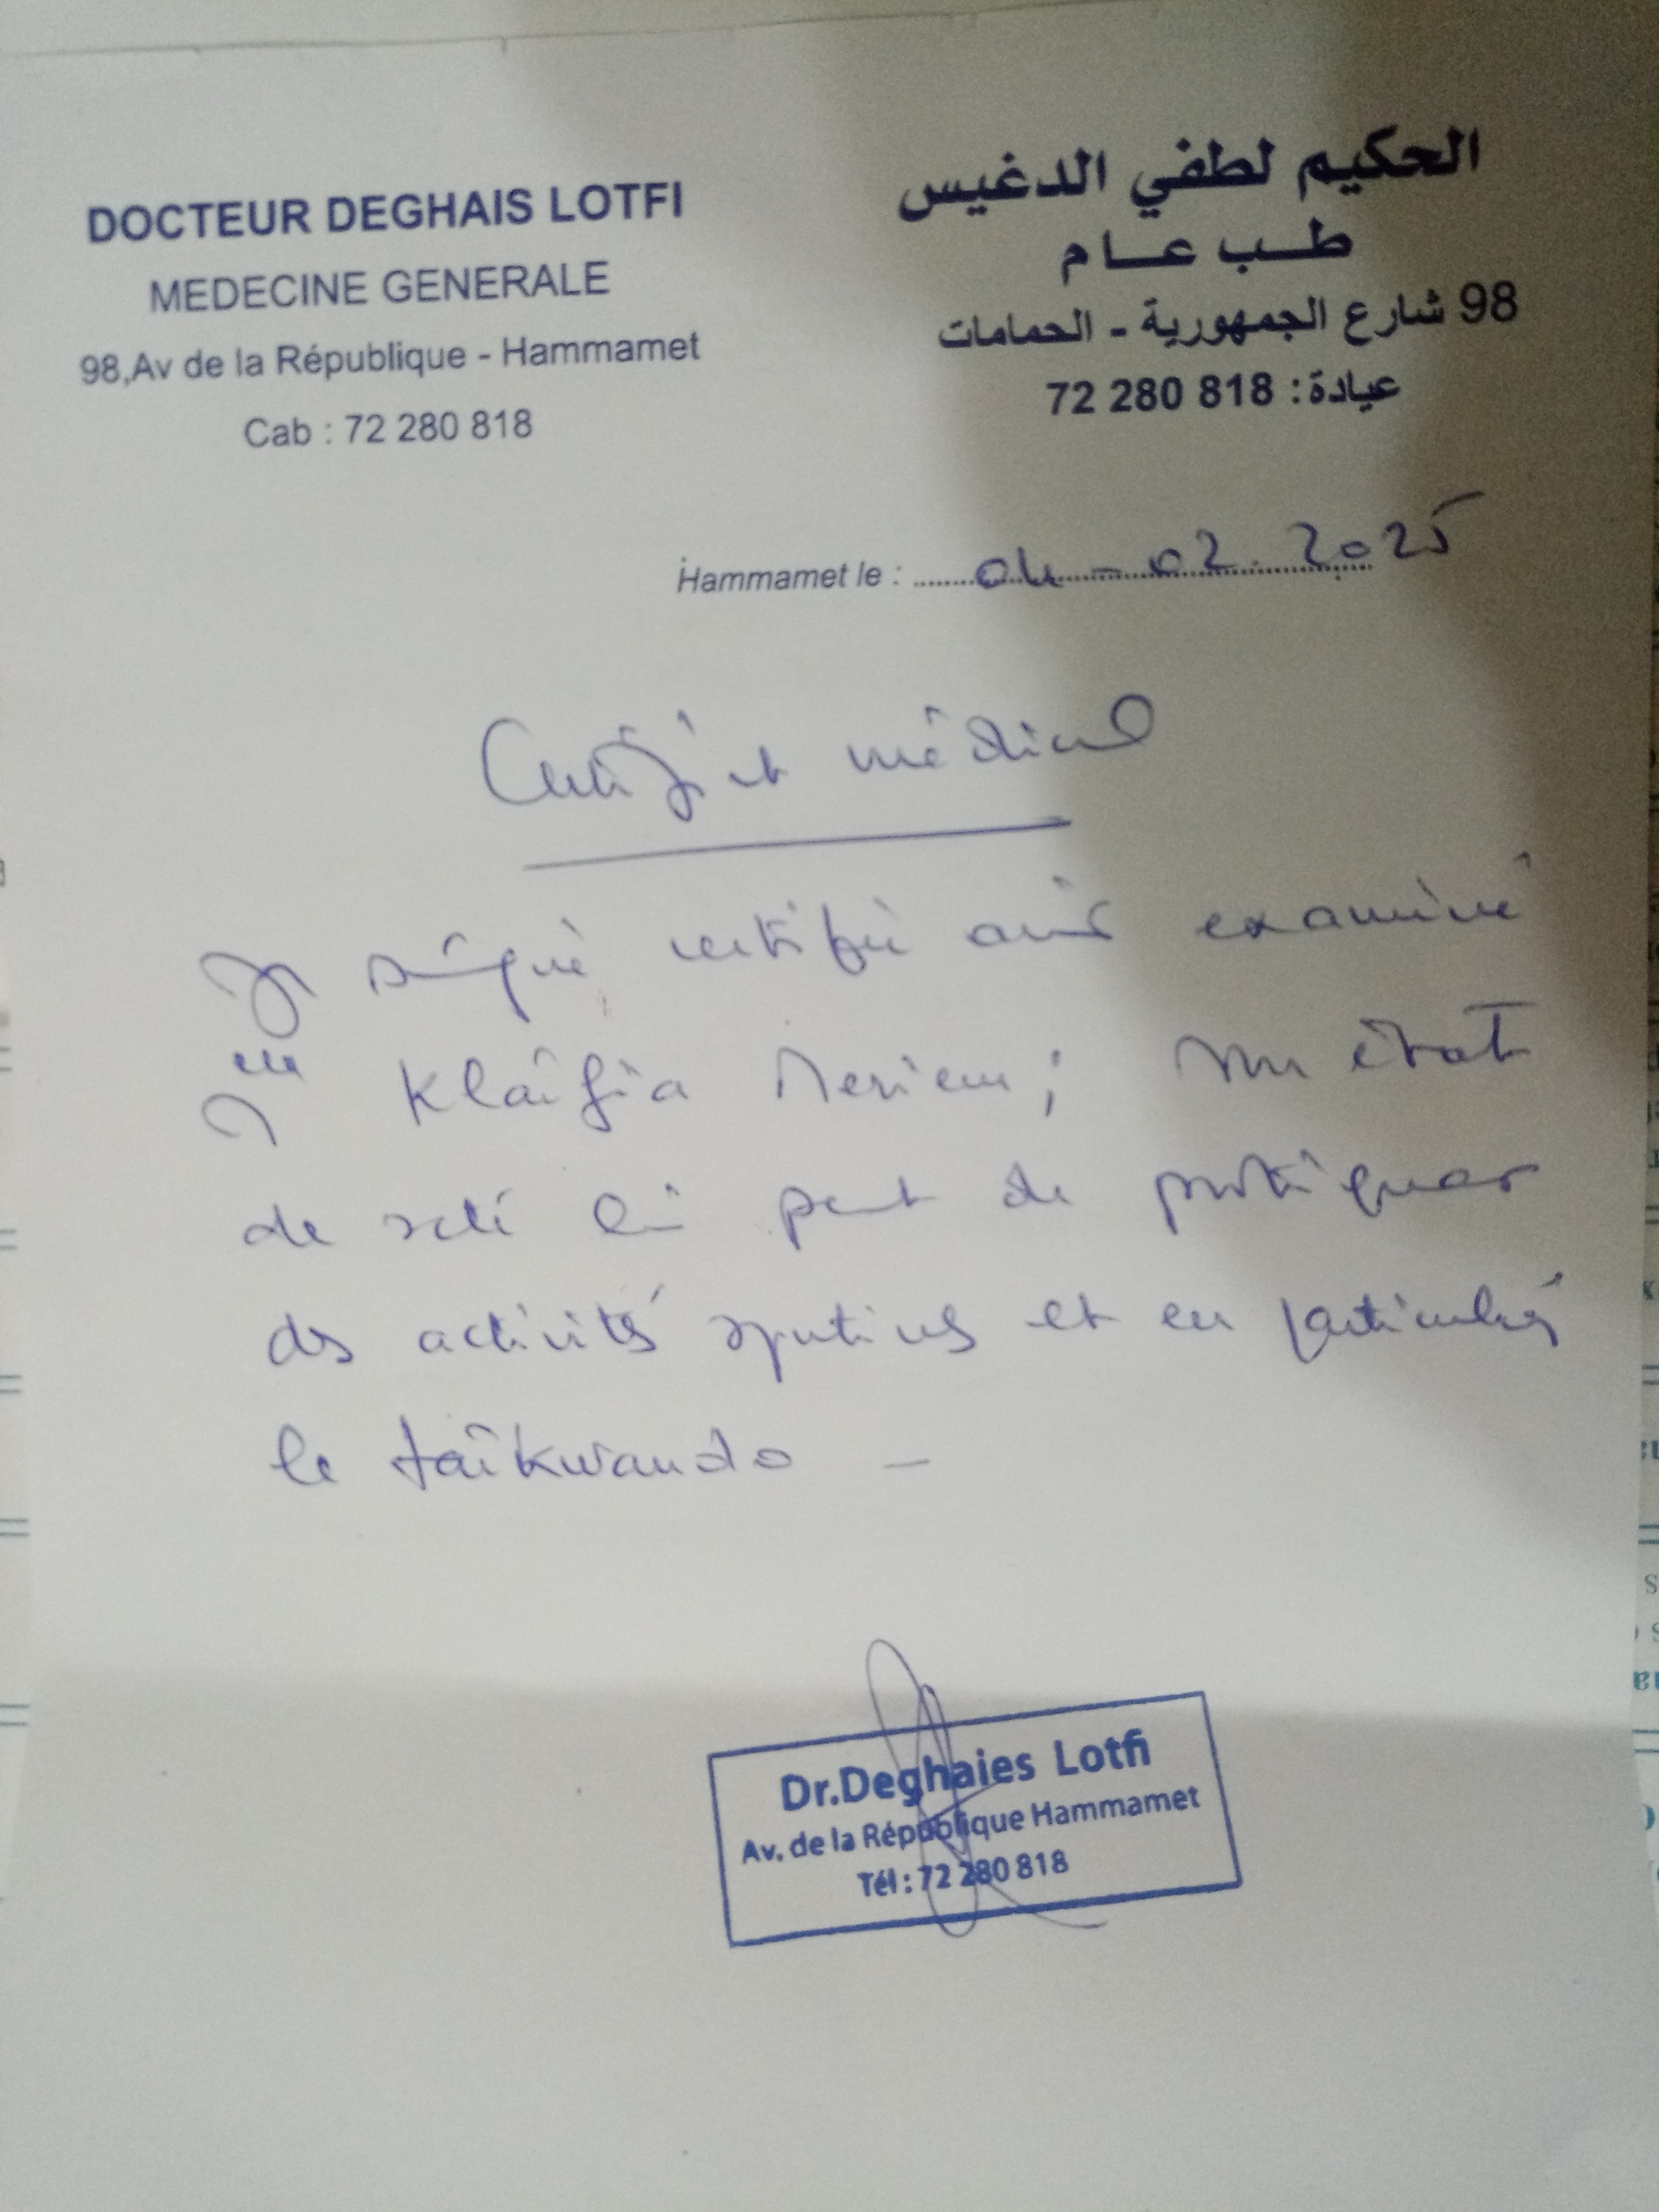 DOCTEUR DEGHAIS LOTFI
MEDECINE GENERALE
98,Av de la République - Hammamet
Cab : 72 280 818
الحكيم لطفي الدغيس
طب عام
98 شارع الجمهورية - الحمامات
عيادة : 72 280 818
Hammamet le : 04 - 02. 2025
Certificat médical
Je soussigné certifie avoir examiné
Mlle Klaifia Meriem ; son état
de santé lui permet de pratiquer
des activités sportives et en particulier
le taîkwando -
Dr.Deghaies Lotfi
Av. de la République Hammamet
Tél : 72 280 818